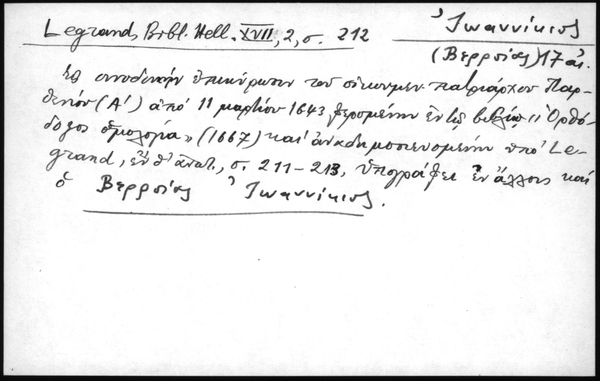 Legrand, Bibl. Hell. XVII, 2, σ. 212
Ἰωαννίκιος
(Βερροίας) 17 αἰ.
Εἰς συνοδικὴν ἐπικύρωσιν τοῦ οἰκουμεν. πατριάρχου Παρ-
θενίου (Α') ἀπό 11 μαρτίου 1643 φερομένην ἐν τῷ βιβλίῳ "Ὀρθό-
δοξος ὁμολογία" (1667) καί ἀναδημοσιευομένην ὑπό Le-
grand, ἐν θ' ἀνατ., σ. 211-213, ὑπογράφει ἐν ἄλλοις καί
ὁ Βερροίας Ἰωαννίκιος.